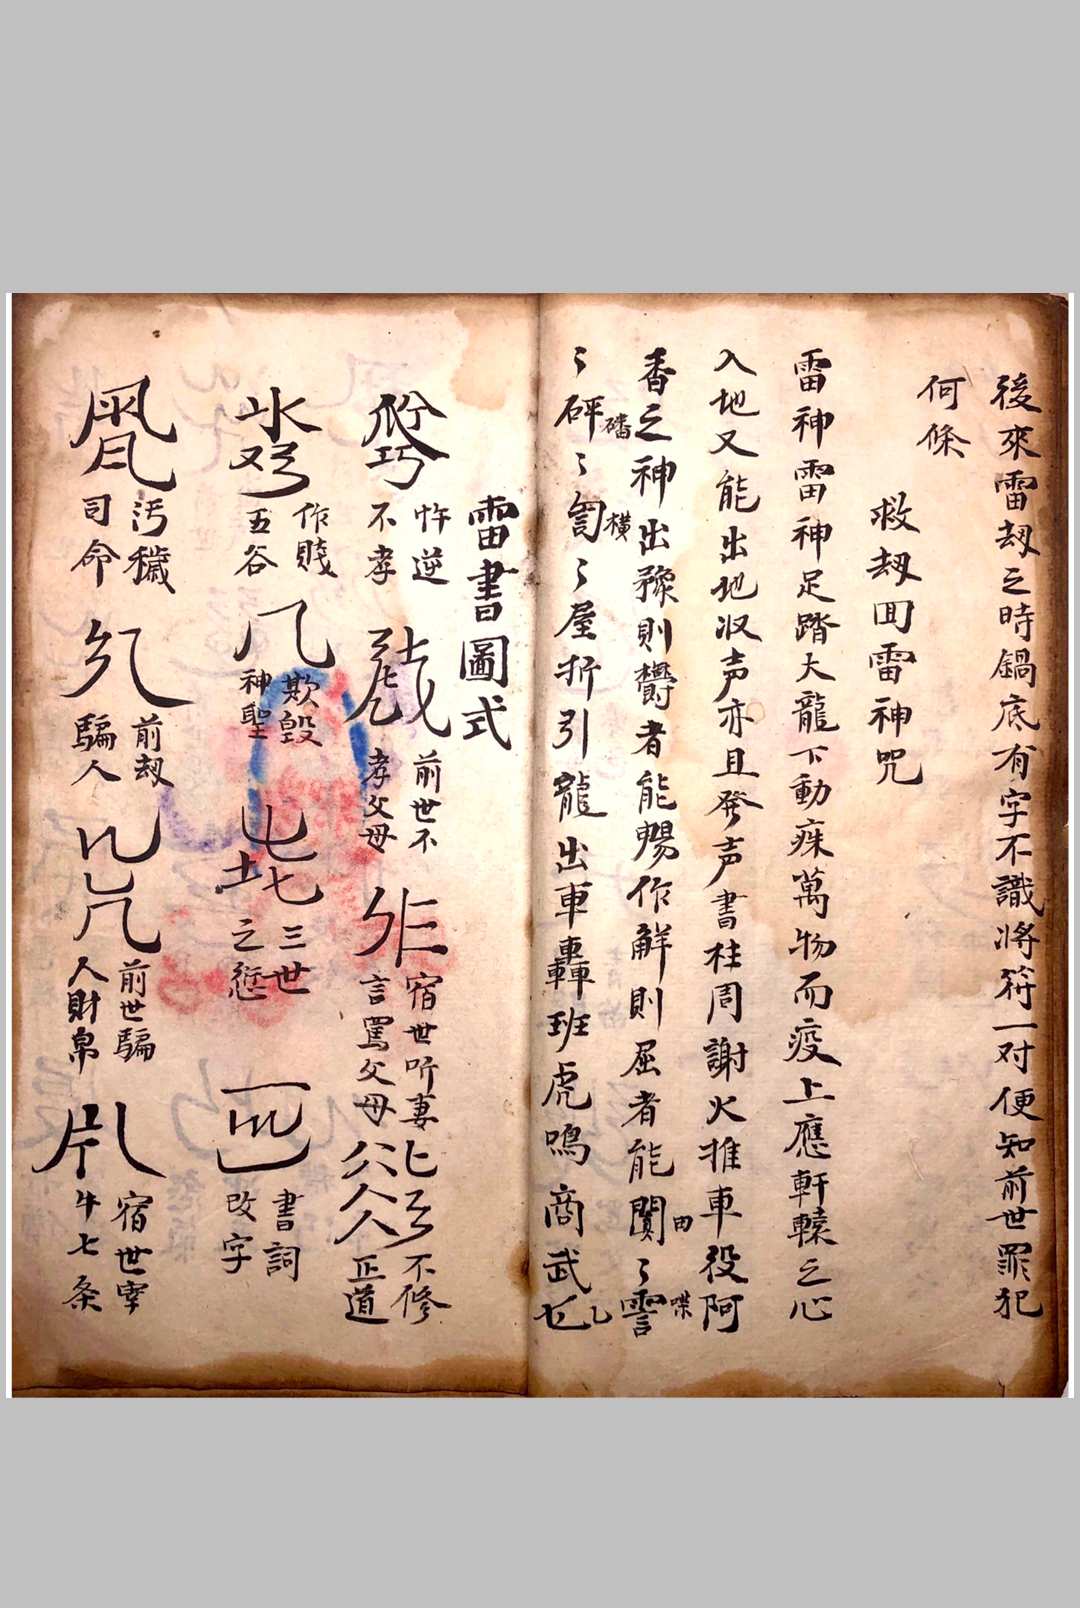 後來雷刼之時鍋底有字不識將符一对便知前世罪犯
何條
救刼囬雷神咒
雷神雷神足踏大龍下動痳萬物而疫上應軒轅之心
入地又能出地収声亦且發声書柱周謝火推車役阿
香之神出豫則欎者能暢作解則屈者能闠田ミ霅喋
ミ砰磻ミ訇橫ミ屋折引龍出車轟班虎鳴商武乜乙
雷書圖式
忤逆
不孝
前世不
孝父母
宿世听妻
言罵父母
不修
正道
作賤
五谷
欺毀
神聖
三世
之愆
書詞
改字
污穢
司命
前刼
騙人
前世騙
人財帛
宿世宰
牛七条